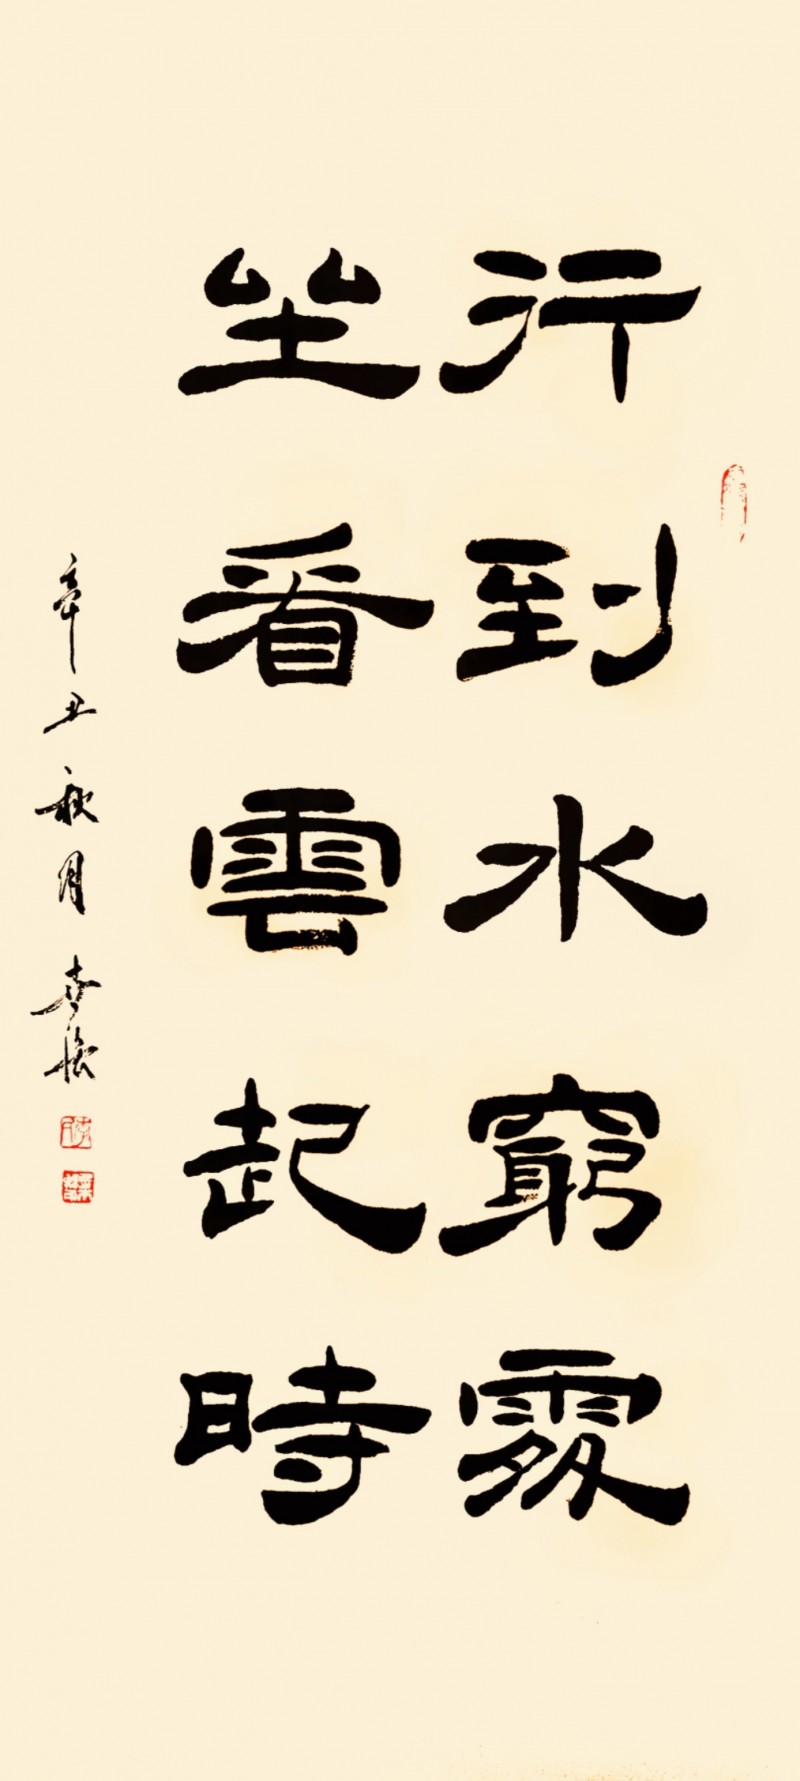 行到水窮處
坐看雲起時
辛丑秋月